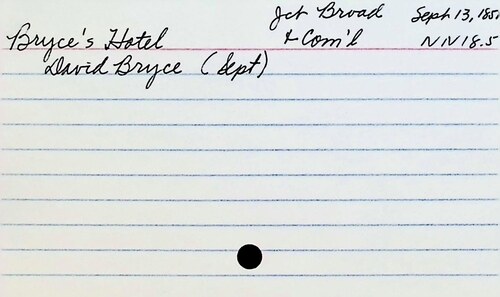 Jct Broad Sept 13, 185
Bryce's Hotel & Com'l NN18.5
David Bryce (Sept)